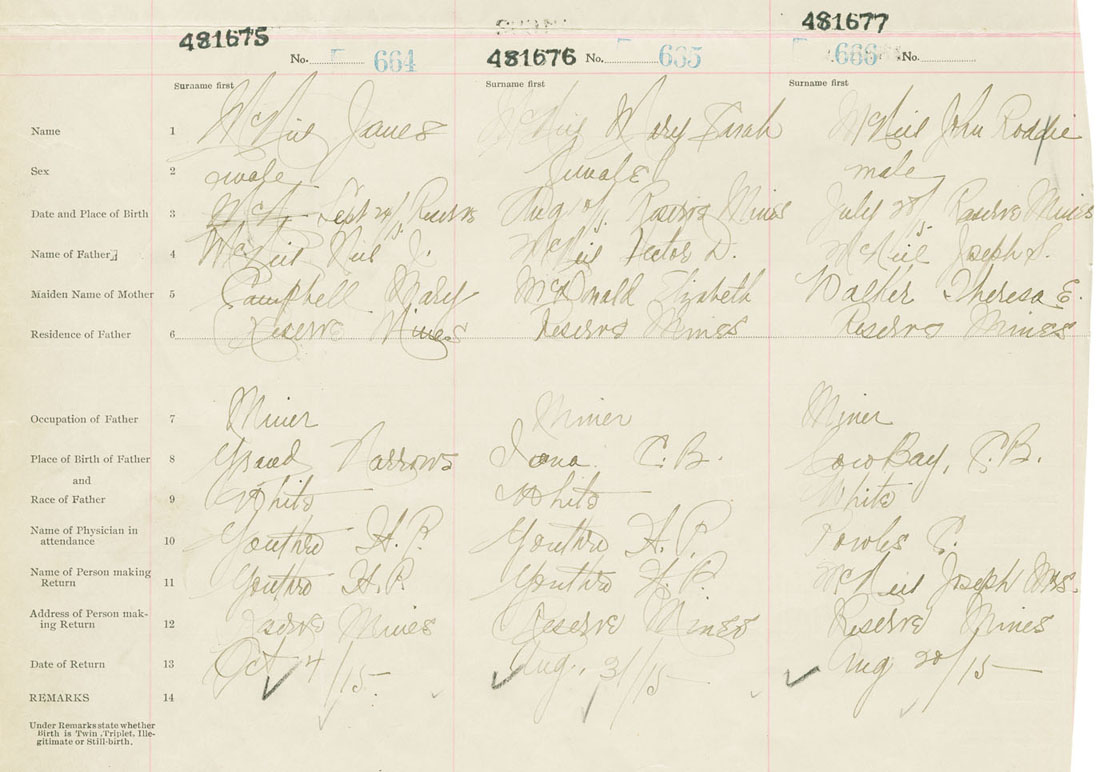 481675 481676 481677
No. 664 No. 665 666 No.
Surname first Surname first Surname first
Name 1 McNeil James McNeil Mary Sarah McNeil John Roddie
Sex 2 male female male
Date and Place of Birth 3 Sept 24, Reserve Aug Reserve Mines July Reserve Mines
Name of Father 4 McNeil Neil J. McNeil Hector D. McNeil Joseph S.
Maiden Name of Mother 5 Campbell Mary McDonald Elizabeth Walker Theresa E.
Residence of Father 6 Reserve Mines Reserve Mines Reserve Mines
Occupation of Father 7 Miner Miner Miner
Place of Birth of Father 8 Grand Narrows Iona C.B. Cow Bay, C.B.
and
Race of Father 9 White White White
Name of Physician in
attendance 10 Gouthro H. P. Gouthro H. P.
Name of Person making
Return 11 Gouthro H. P. Gouthro H. P. McNeil Joseph Mrs.
Address of Person mak-
ing Return 12 Reserve Mines Reserve Mines Reserve Mines
Date of Return 13 Oct 4/15 Aug. 31/15 Aug 20/15
REMARKS 14
Under Remarks state whether
Birth is Twin, Triplet, Ille-
gitimate or Still-birth.